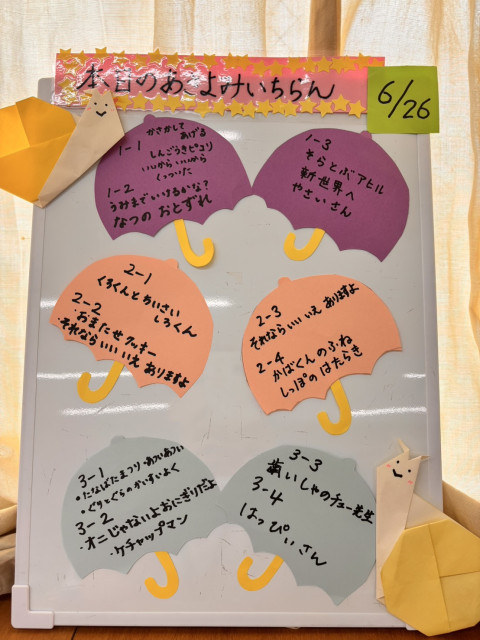 本日のあさよみいちらん
6/26
かさかして
あげる
1-1
しんごうきピコリ
いいから いいから
くっついた
1-2
うみまでいけるかな?
なつの おとずれ
1-3
そらとぶアヒル
新世界へ
やさいさん
2-1
くろくんとちいさい
しろくん
2-2
・おまたせクッキー
それなら いい いえ ありますよ
2-3
それなら いい いえ ありますよ
2-4
かばくんのふね
しっぽの はたらき
3-1
・たなばたまつり・あついあつい
・ぐりとぐらのかいすいよく
3-2
・オニじゃないよおにぎりだよ
・ケチャップマン
3-3
歯いしゃのチュー先生
3-4
はっぴぃさん